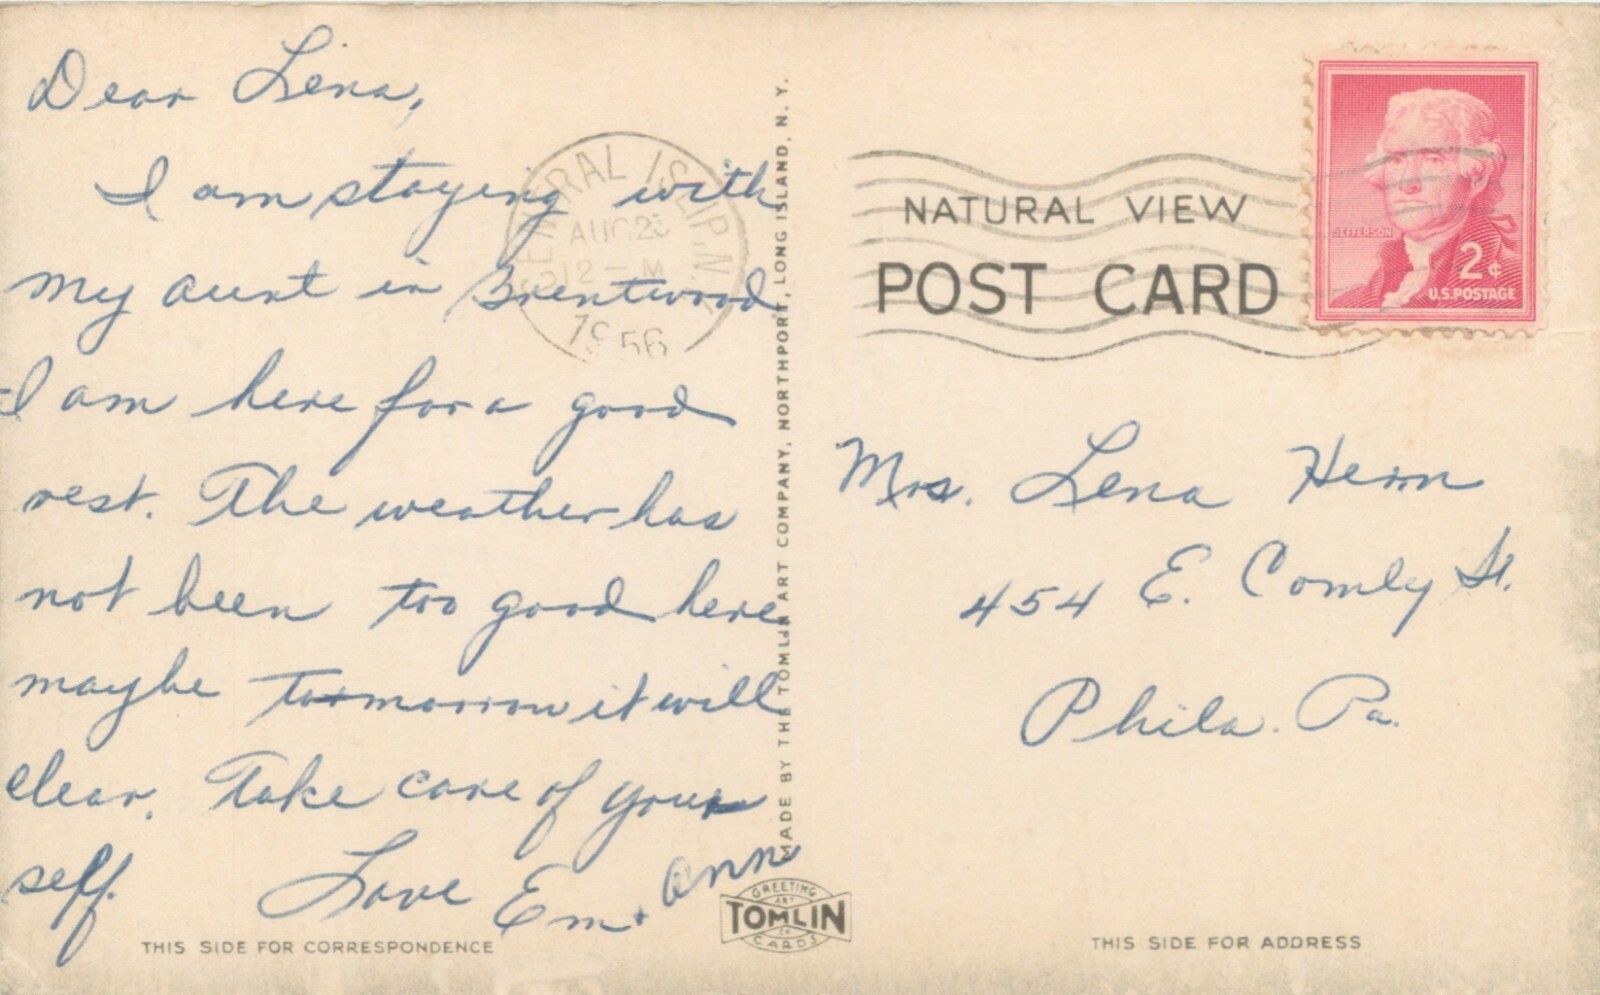 Dear Lena,
I am staying with
my aunt in Brentwood
I am here for a good
rest. The weather has
not been too good here
maybe tomorrow it will
clear. Take care of your
self.
Love Em + Ann
THIS SIDE FOR CORRESPONDENCE
CENTRAL ISLIP, N.
AUG 23
12 - M
1956
MADE BY THE TOMLIN ART COMPANY, NORTHPORT, LONG ISLAND, N. Y.
GREETING
ART
TOMLIN
CO
CARDS
NATURAL VIEW
POST CARD
JEFFERSON
2¢
U.S. POSTAGE
Mrs. Lena Hern
454 E. Comly St.
Phila. Pa.
THIS SIDE FOR ADDRESS